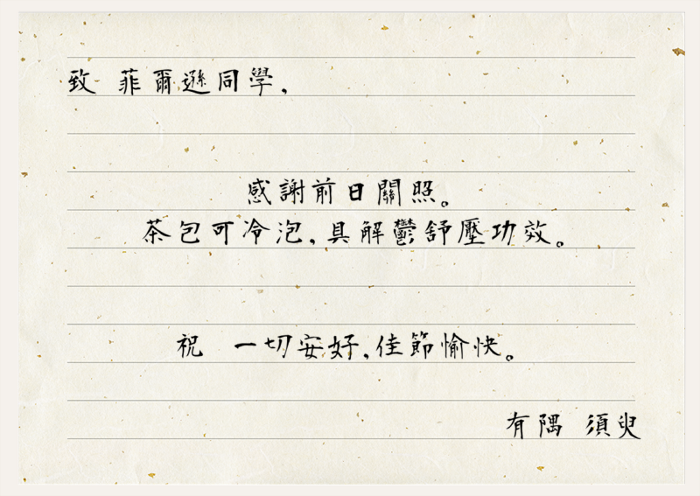 致 菲爾遜同學,
感謝前日關照。
茶包可冷泡,具解鬱舒壓功效。
祝 一切安好,佳節愉快。
有隅 須臾